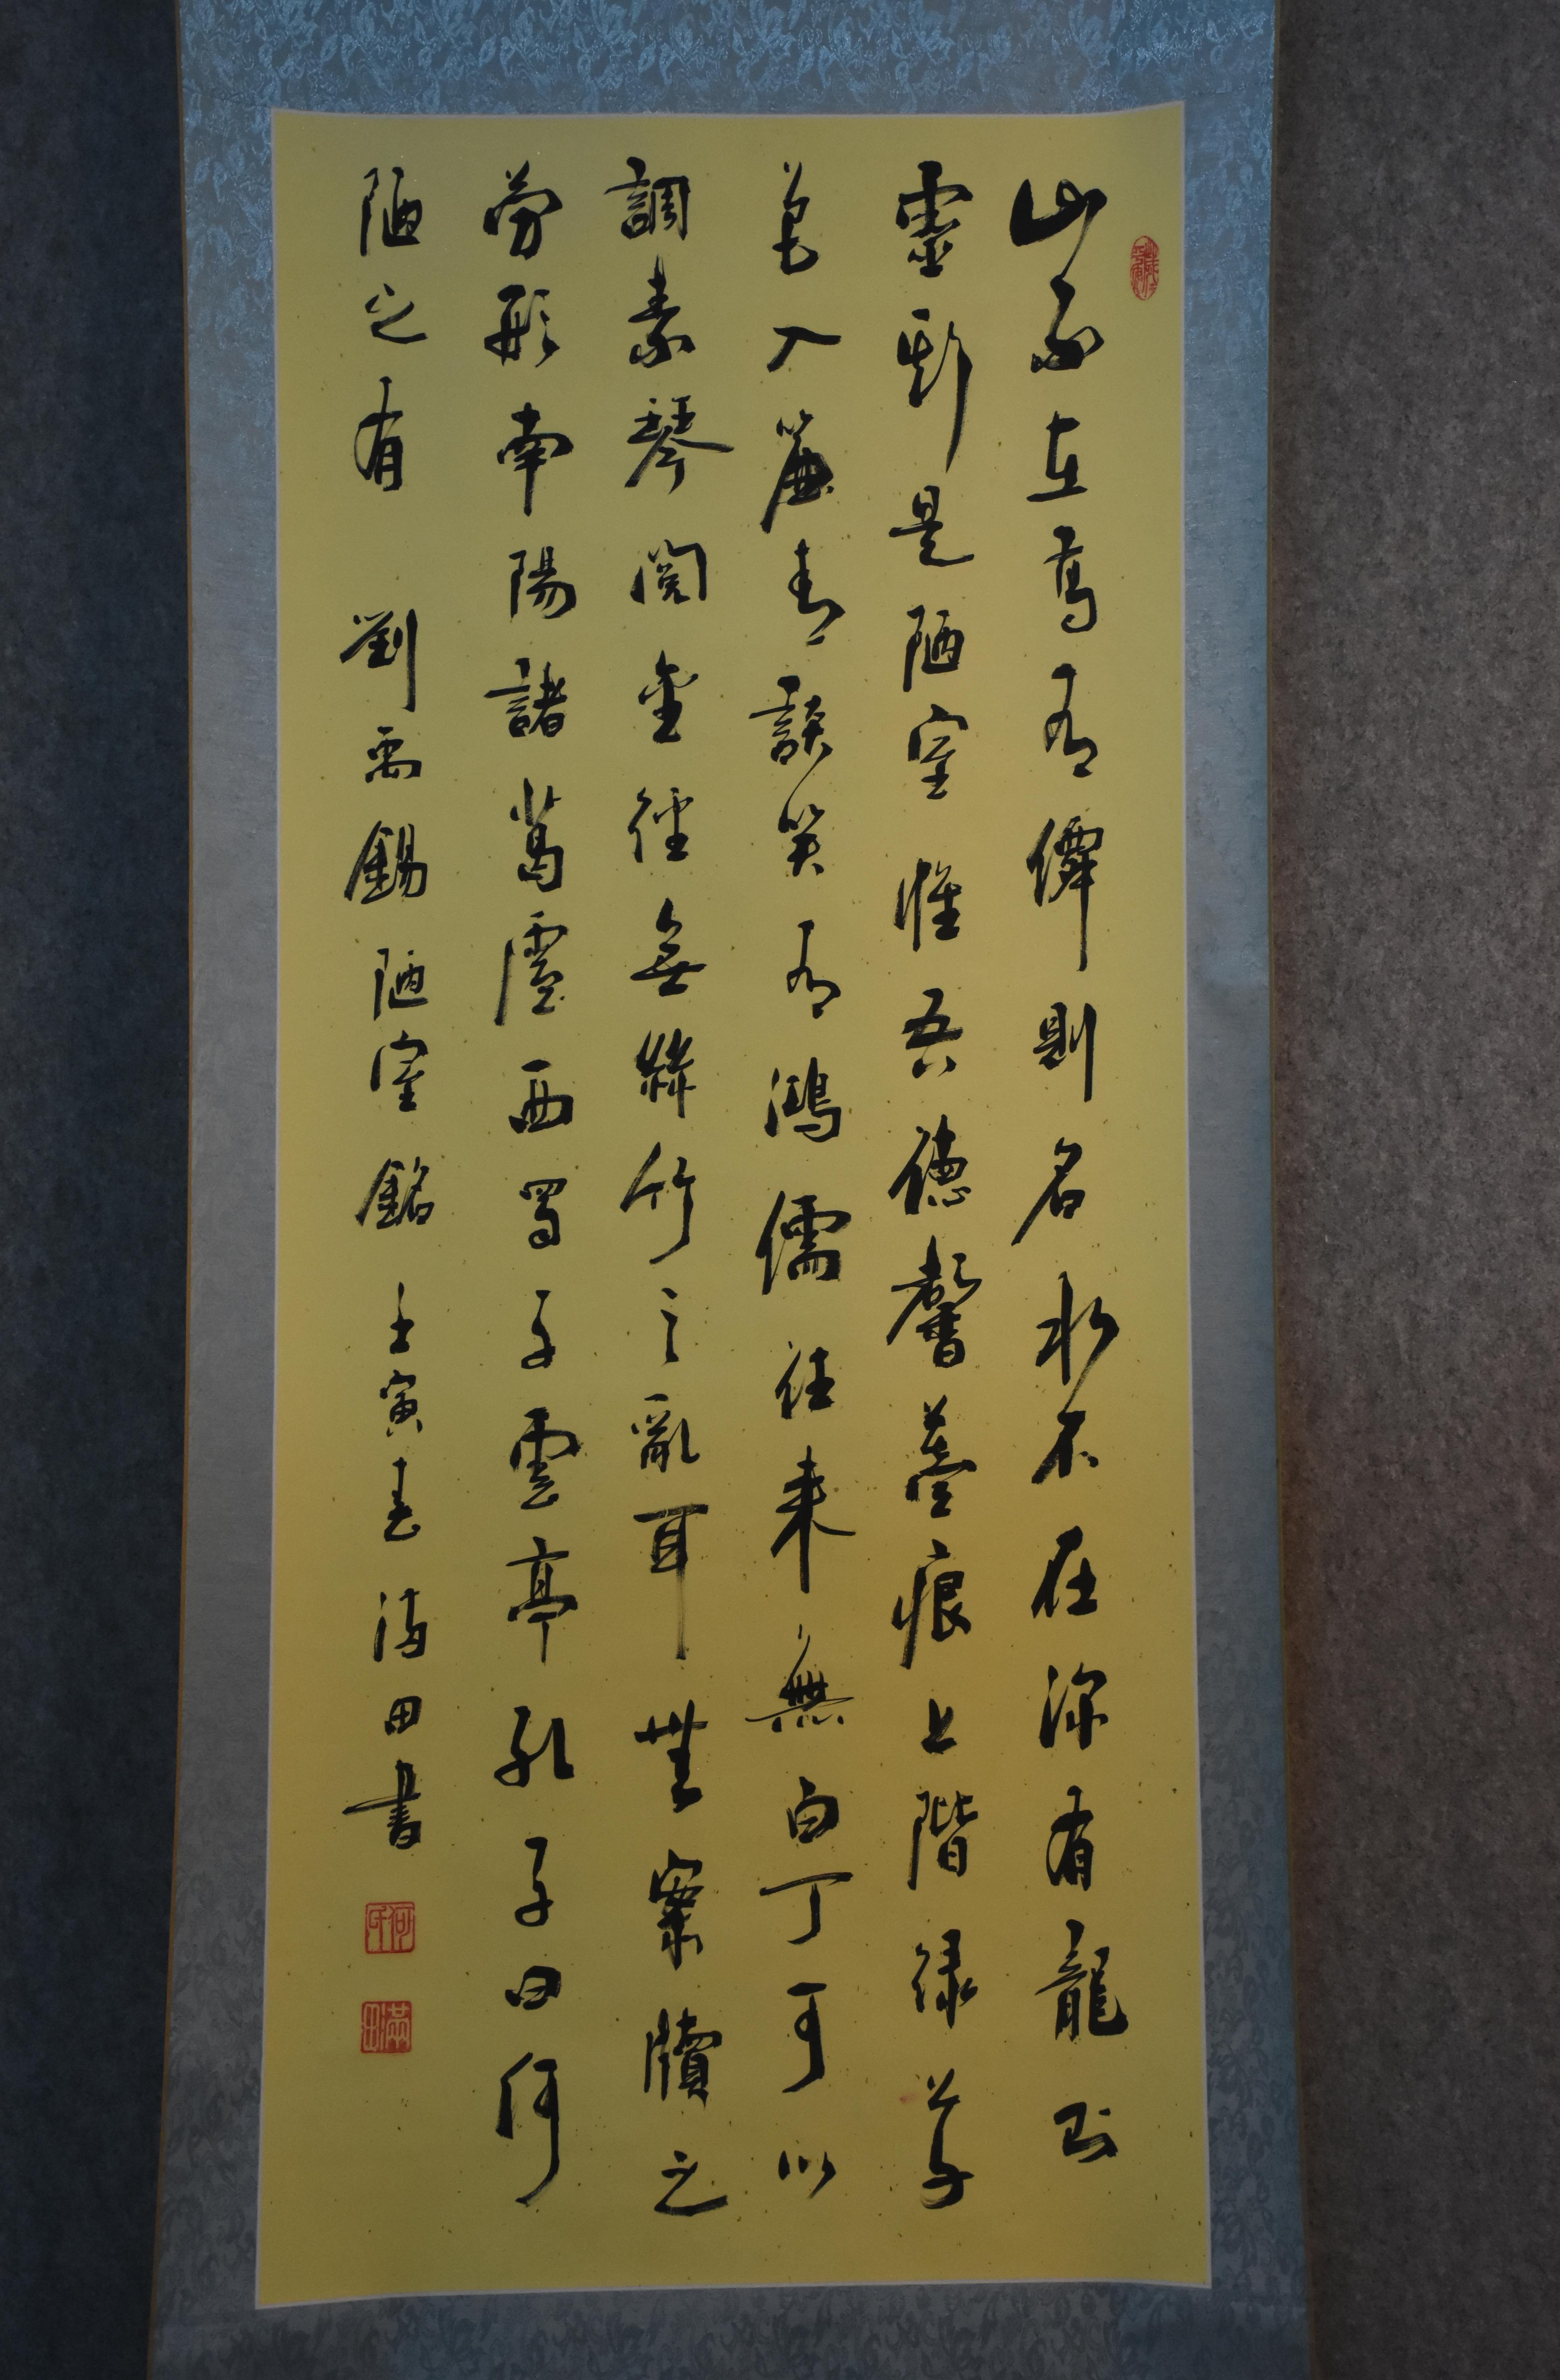 山不在高有僊則名水不在深有龍則
靈斯是陋室惟吾德馨苔痕上階緑草
色入簾青談笑有鴻儒往来無白丁可以
調素琴閲金經無絲竹之亂耳無案牘之
勞形南陽諸葛廬西蜀子雲亭孔子曰何
陋之有 劉禹錫陋室銘 壬寅春 滿田書
何氏
滿田